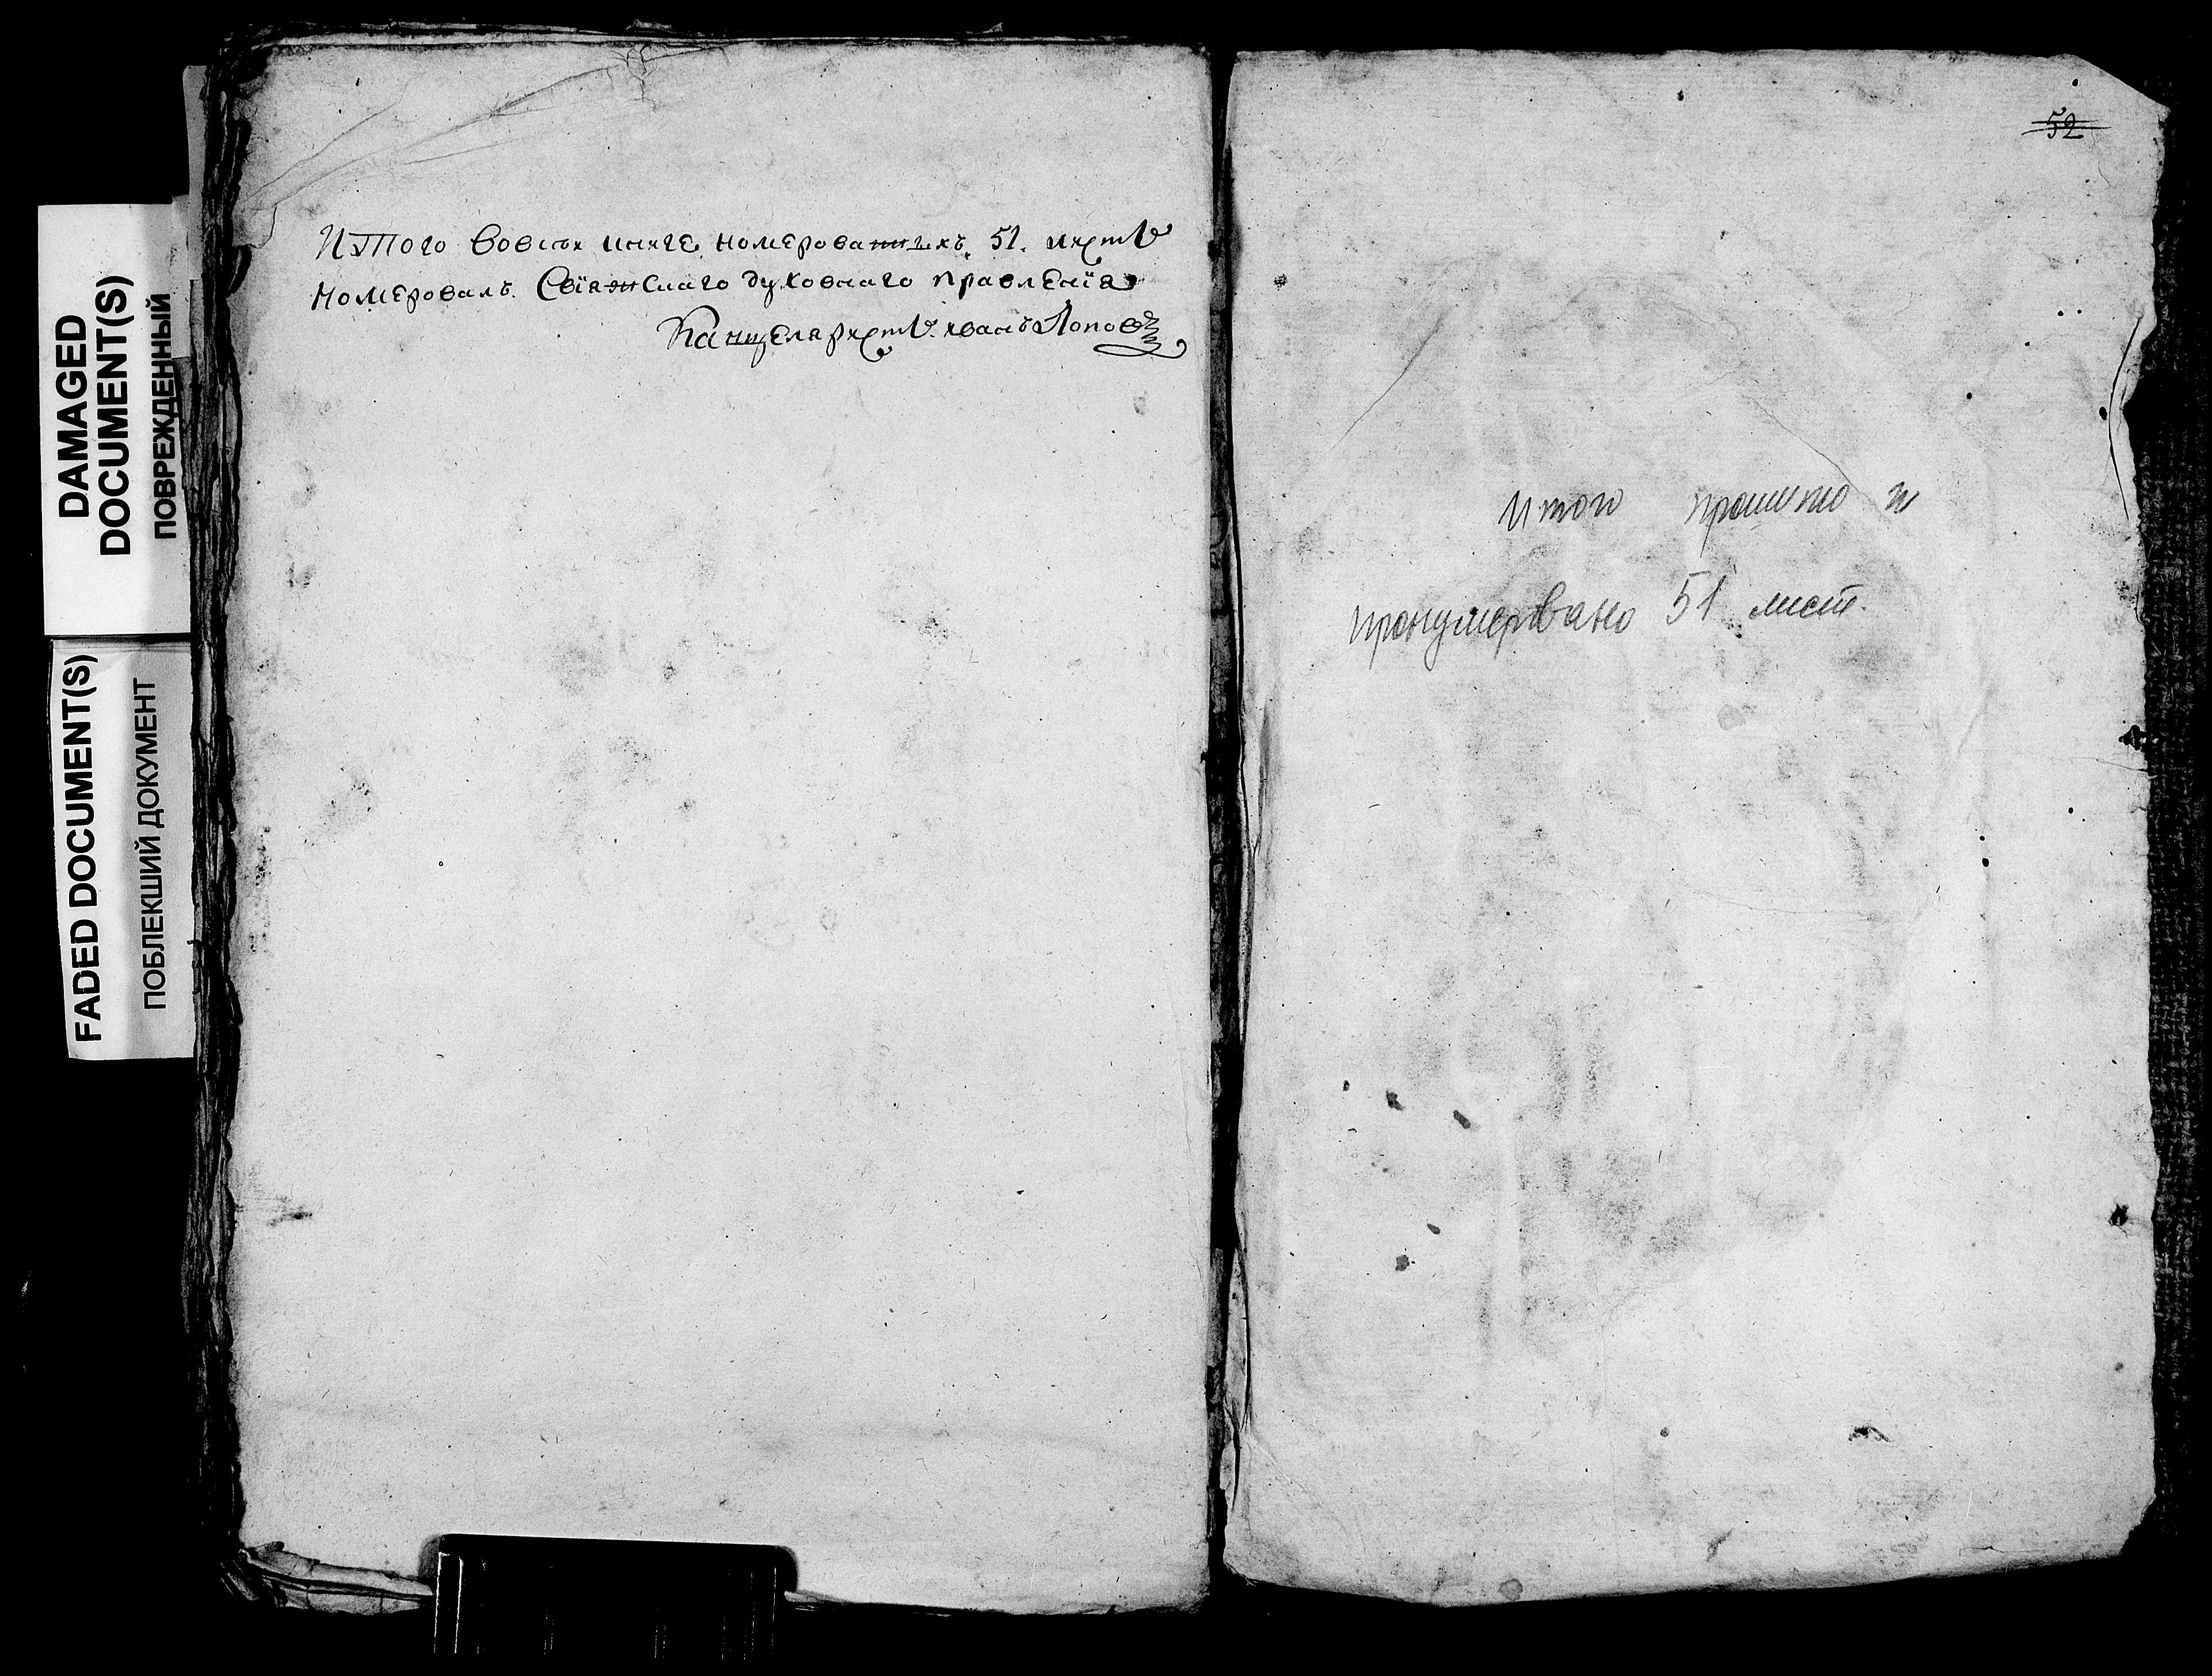 Итого вовсѣй книге номерованныхъ 51. листъ
Номеровалъ Свіяжскаго духовнаго правленія
Канцеляристъ иванъ Попов
52
Итого прошито и
пронумеровано 51 лист.
DAMAGED
DOCUMENT(S)
ПОВРЕЖДЕННЫЙ
FADED DOCUMENT(S)
ПОБЛЕКШИЙ ДОКУМЕНТ